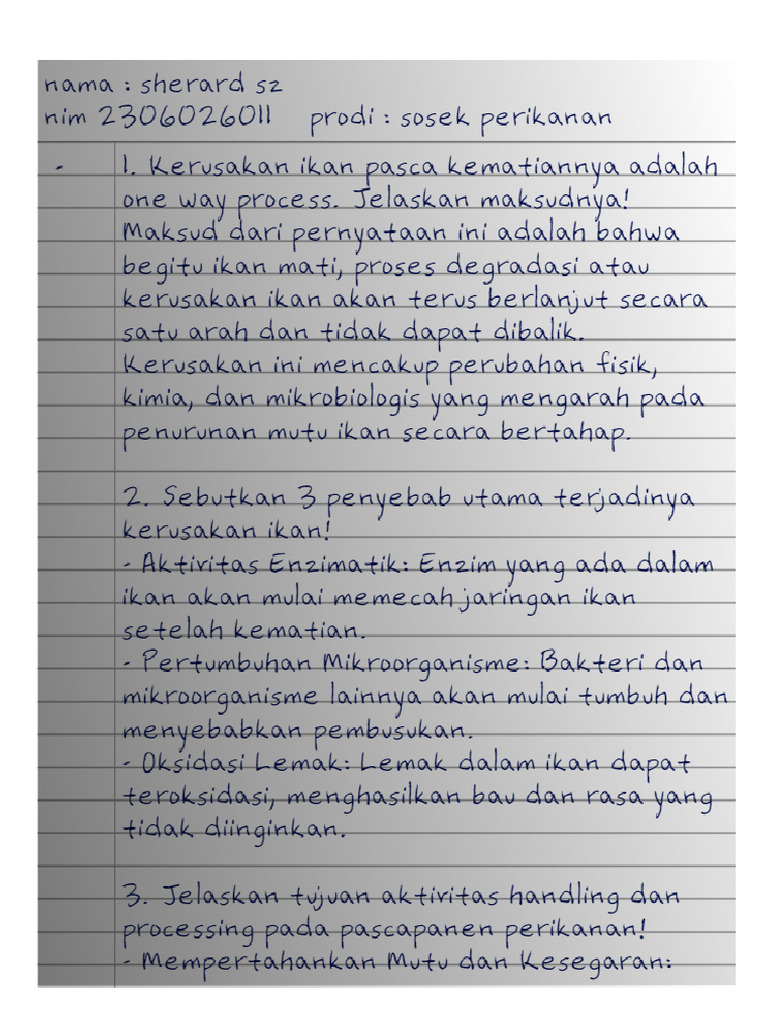 nama : sherard sz
nim 2306026011 prodi : sosek perikanan
- 1. Kerusakan ikan pasca kematiannya adalah
one way process. Jelaskan maksudnya!
Maksud dari pernyataan ini adalah bahwa
begitu ikan mati, proses degradasi atau
kerusakan ikan akan terus berlanjut secara
satu arah dan tidak dapat dibalik.
Kerusakan ini mencakup perubahan fisik,
kimia, dan mikrobiologis yang mengarah pada
penurunan mutu ikan secara bertahap.
2. Sebutkan 3 penyebab utama terjadinya
kerusakan ikan!
- Aktivitas Enzimatik: Enzim yang ada dalam
ikan akan mulai memecah jaringan ikan
setelah kematian.
- Pertumbuhan Mikroorganisme: Bakteri dan
mikroorganisme lainnya akan mulai tumbuh dan
menyebabkan pembusukan.
- Oksidasi Lemak: Lemak dalam ikan dapat
teroksidasi, menghasilkan bau dan rasa yang
tidak diinginkan.
3. Jelaskan tujuan aktivitas handling dan
processing pada pascapanen perikanan!
- Mempertahankan Mutu dan Kesegaran: